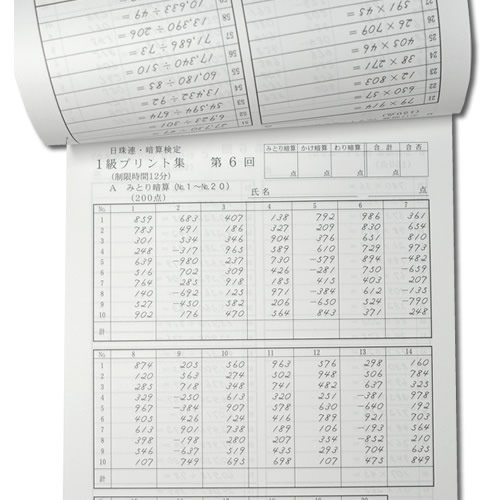 10,633 ÷ 49 =
13,390 ÷ 206 = 58
71,686 ÷ 73 = 57
17,340 ÷ 510 = 56
60,180 ÷ 85 = 55
13,432 ÷ 92 = 54
54,594 ÷ 674 = 53
26 × 709 = 26
405 × 46 = 25
271 × 38 = 24
12 × 803 = 23
630 × 57 = 22
日珠連・暗算検定
1級プリント集 第6回
(制限時間12分)
みとり暗算 かけ暗算 わり暗算 合計 合否
点 点 点 点
A みとり暗算(No.1～No.20) 氏名 点
(200点)
No. 1 2 3 4 5 6 7
1 859 683 407 138 792 986 361
2 783 491 186 327 209 830 654
3 301 534 346 904 376 651 810
4 248 -317 965 589 610 729 973
5 639 -980 237 730 -579 894 -482
6 516 702 309 426 -281 750 -659
7 764 285 918 185 415 403 207
8 140 -692 125 971 -384 612 -135
9 527 -450 582 206 -650 524 -790
10 902 176 470 564 843 371 248
計
No. 8 9 10 11 12 13 14
1 874 205 560 963 576 298 160
2 120 563 274 502 948 506 784
3 285 718 348 741 482 637 325
4 329 -250 613 320 251 -381 978
5 967 -384 907 578 630 -640 192
6 405 426 124 416 789 921 703
7 613 901 738 189 106 -193 564
8 398 -198 280 207 354 -852 210
9 546 -637 519 435 293 704 635
10 107 749 695 698 107 475 849
計